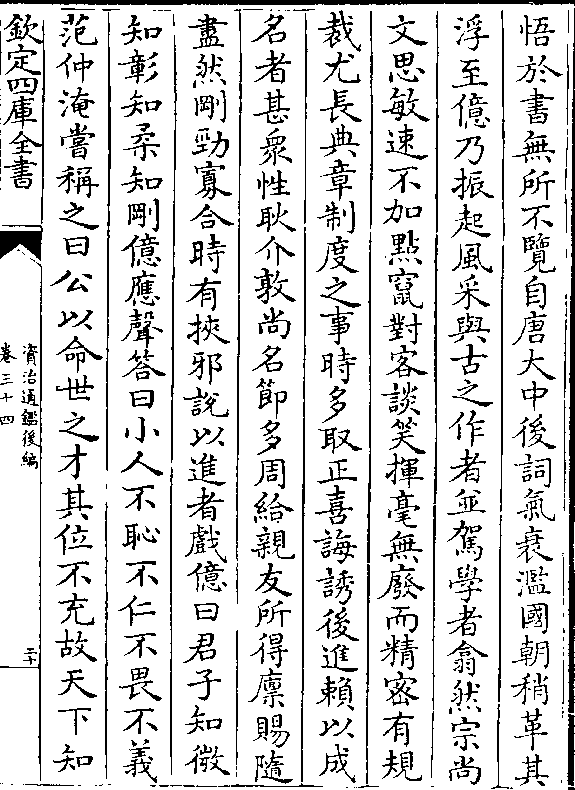 悟於書無所不覽自唐大中後詞氣衰濫國朝稍革其
浮至億乃振起風采與古之作者並駕學者翕然宗尚
文思敏速不加點竄對客談笑揮毫無廢而精密有規
裁尤長典章制度之事時多取正喜誨誘後進賴以成
名者甚衆性耿介敦尚名節多周給親友所得廩賜隨
盡然剛勁寡合時有挾邪說以進者戲億曰君子知微
知彰知柔知剛億應聲答曰小人不恥不仁不畏不義
范仲淹嘗稱之曰公以命世之才其位不充故天下知
欽定四庫全書
資治通鑑後編
卷三十四
二十